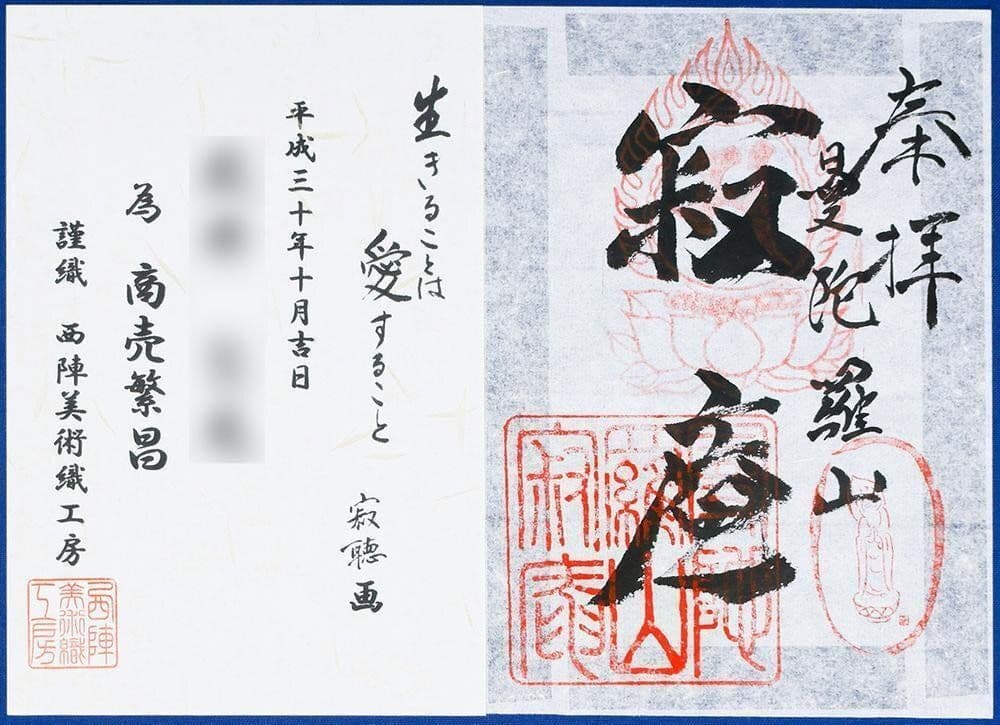 奉拝
曼陀羅山
寂庵
生きることは
愛すること
寂聴 画
平成三十年十月吉日
為 商売繁昌
謹織 西陣美術織工房
西陣
美術織
工房